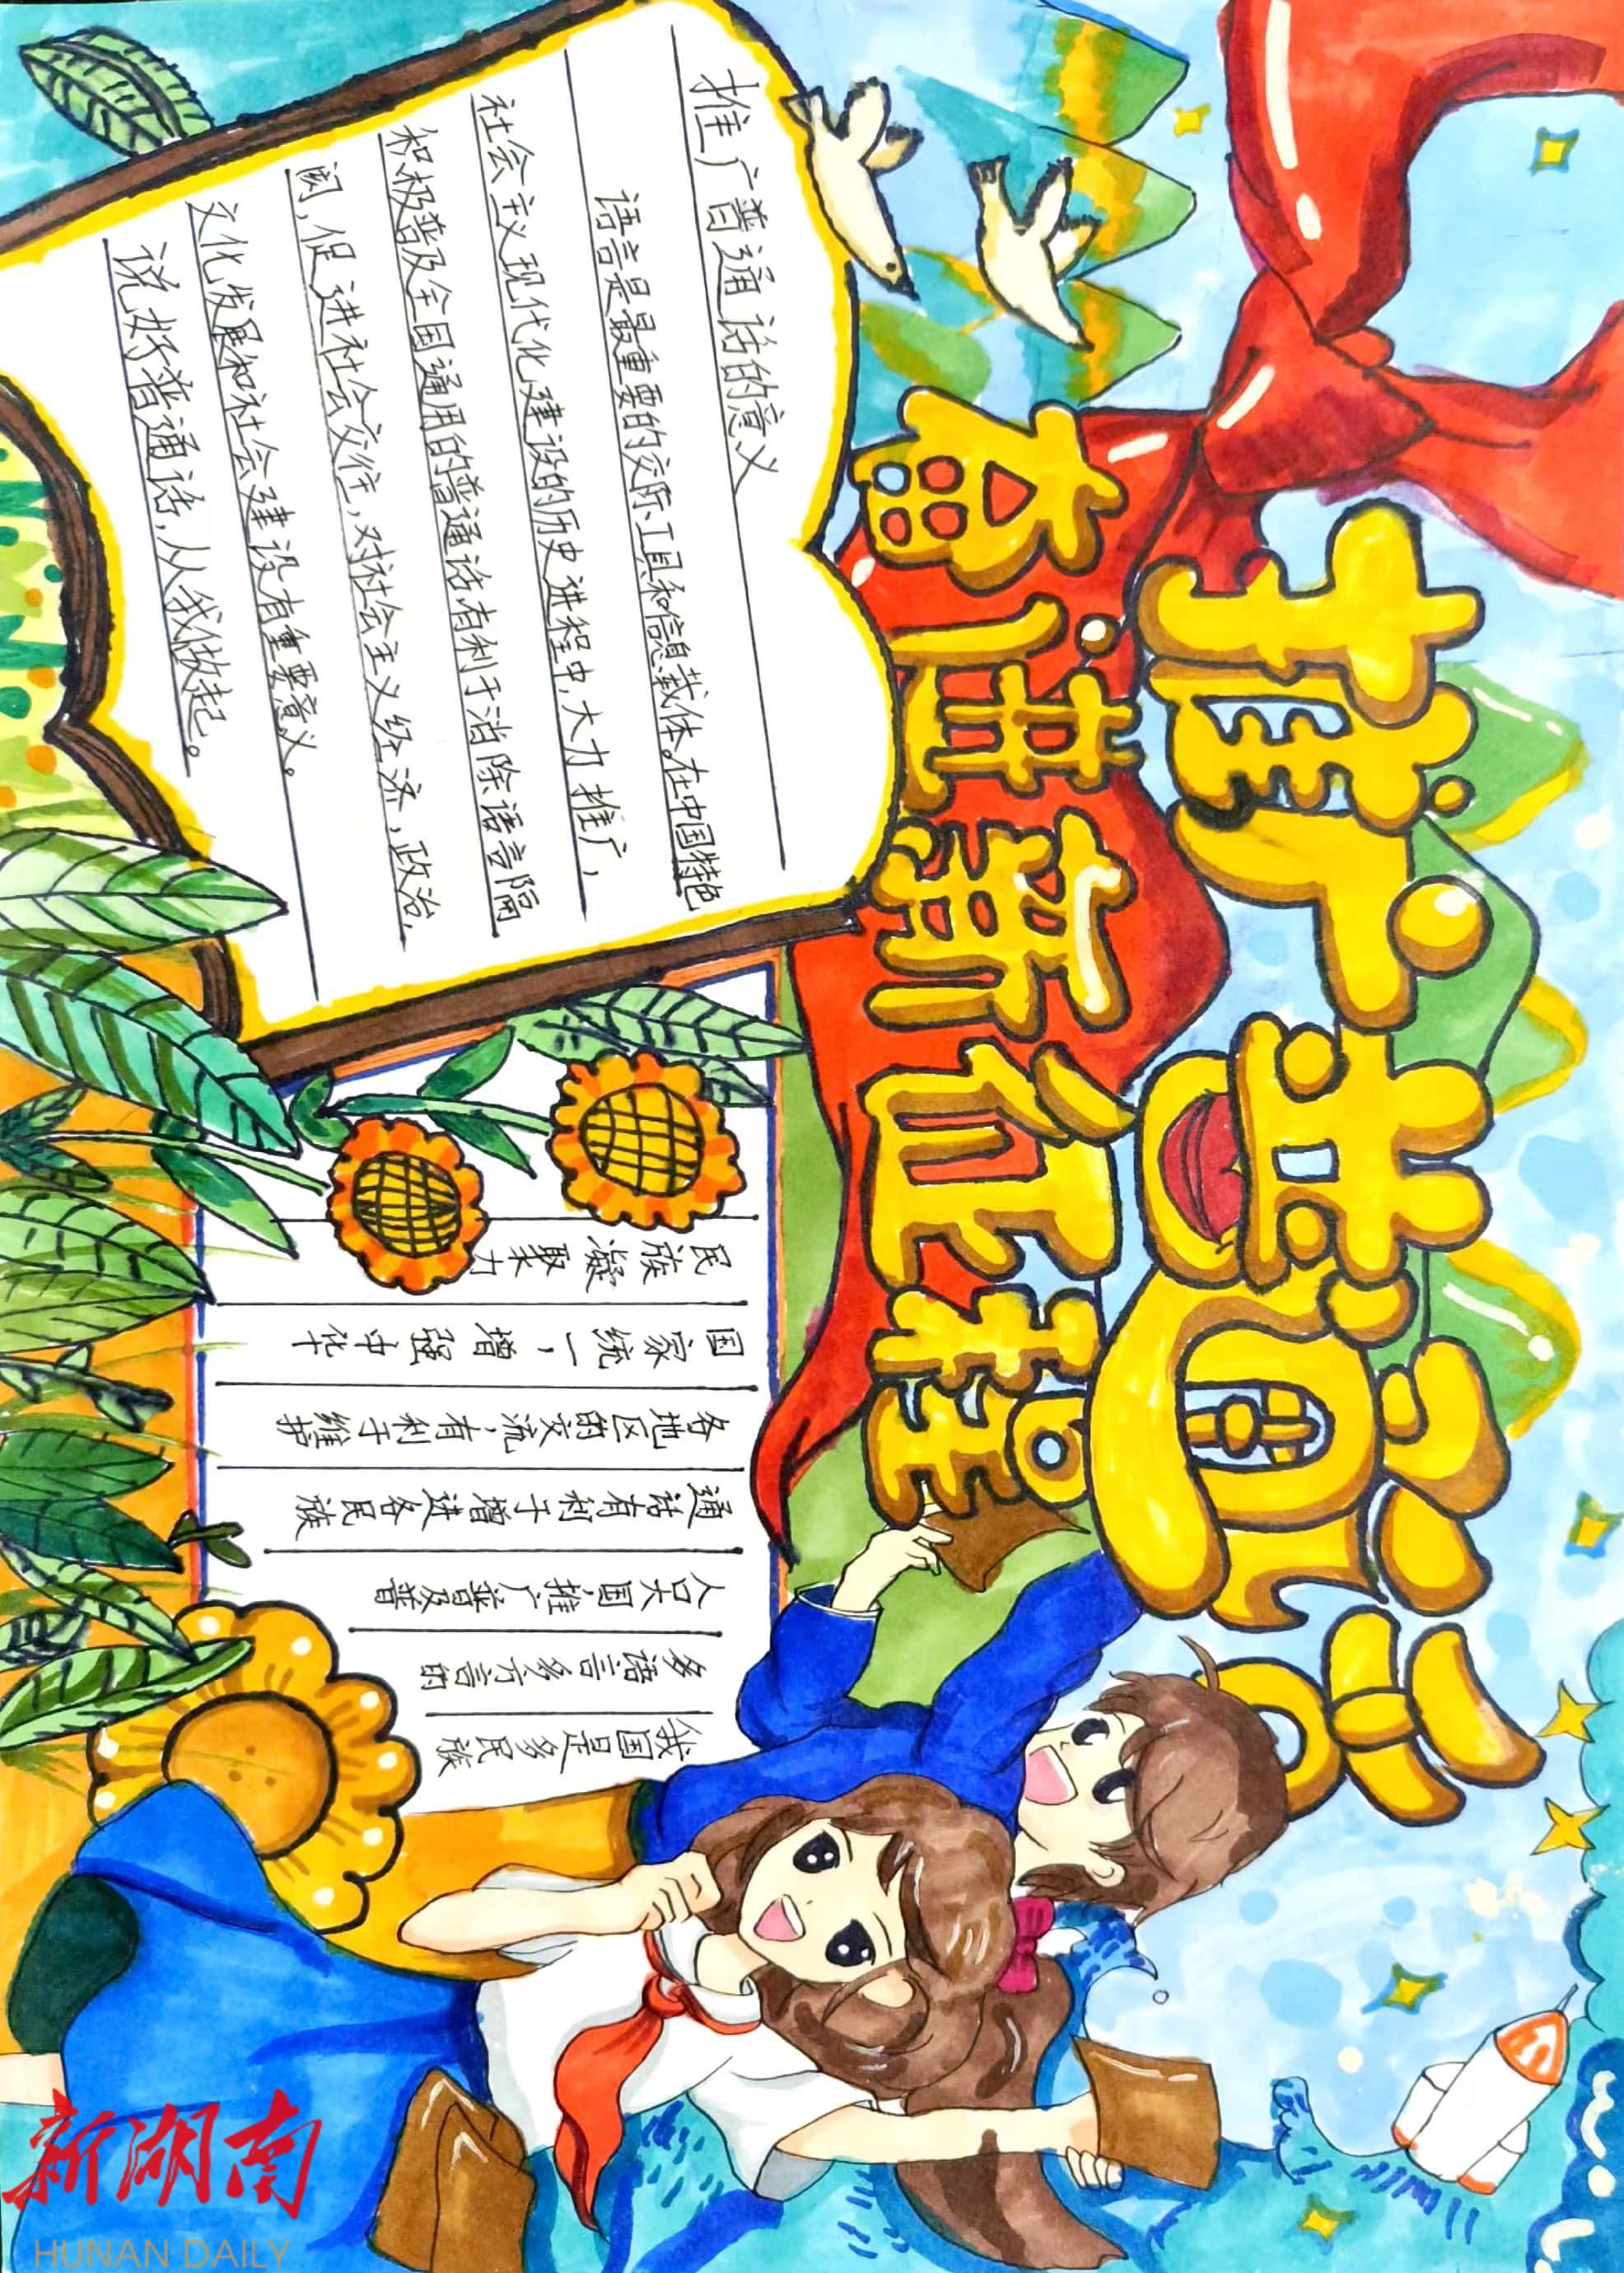 推广普通话
奋进新征程
推广普通话的意义
语言是最重要的交际工具和信息载体。在中国特色
社会主义现代化建设的历史进程中,大力推广,
积极普及全国通用的普通话,有利于消除语言隔
阂,促进社会交往,对社会主义经济,政治,
文化发展和社会建设有重要意义。
说好普通话,从我做起。
我国是多民族
多语言多方言的
人口大国,推广普及普
通话有利于增进各民族
各地区的交流,有利于维护
国家统一,增强中华
民族凝聚力
新湖南
HUNAN DAILY